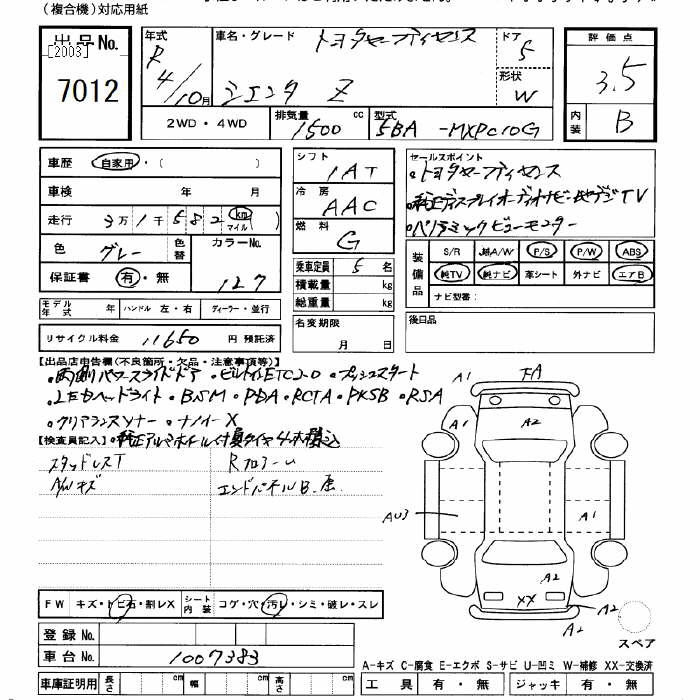 (複合機)対応用紙
出品No. 年式 車名・グレード トヨタセーフティセンス ドア 5 評価点
[2003] R 形状 3.5
7012 4/10月 シエンタ Z W
2WD・4WD 排気量 1500 cc 型式 5BA-MXPC10G 内装 B
車歴 自家用・( ) シフト 1AT セールスポイント
・トヨタセーフティセンス
車検 年 月 冷房 AAC ・純正ディスプレイオーディオナビ・地デジTV
走行 3万1千582 km マイル ( ) 燃料 G ・パノラミックビューモニター
色 グレー 色替 カラーNo. 127 乗車定員 5名 装備品 S/R 純A/W P/S P/W ABS
保証書 有・無 積載量 kg 純TV 純ナビ 革シート 外ナビ エアB
総重量 kg ナビ型番:
モデル年式 年 ハンドル 左・右 ディーラー・並行 名変期限 月 日 後日品
リサイクル料金 11650 円 預託済
【出品店申告欄(不良箇所・欠品・注意事項等)】
・両側パワースライドドア ・ビルトインETC2.0 ・プッシュスタート
・LEDヘッドライト ・BSM ・PDA ・RCTA ・PKSB ・RSA
・クリアランスソナー ・ナノイーX
【検査員記入】 ・純正アルミホイール付夏タイヤ4本積込
スタッドレスT Rフロアー
A/Wキズ エンドパネルB.
A1 FA
A1 A2
AU3 A1
A2
XX A2
A2
スペア
FW キズ・トビ石・割レX シート内装 コゲ・穴・汚レ・シミ・破レ・スレ
登録No.
車台No. 1007383
A-キズ C-腐食 E-エクボ S-サビ U-凹ミ W-補修 XX-交換済
車庫証明用 長さ cm 幅 cm 高さ cm 工具 有・無 ジャッキ 有・無